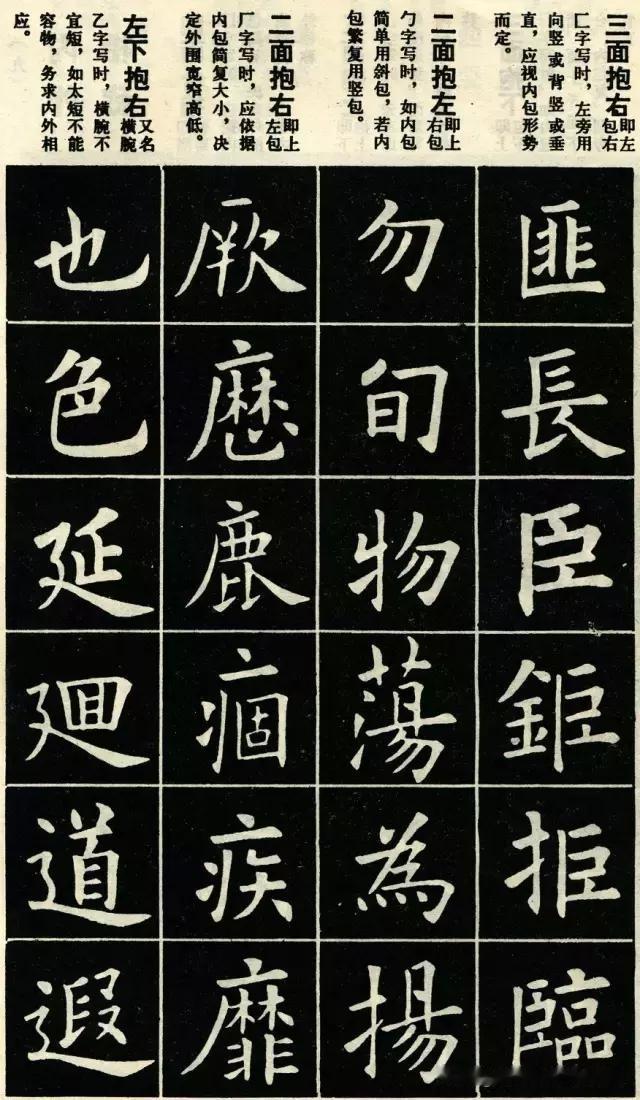 三面抱右 即左包右
匚字写时，左旁用
向竖或背竖或垂
直，应视内包形势
而定。
二面抱左 即上右包
勹字写时，如内包
简单用斜包，若内
包繁复用竖包。
二面抱右 即上左包
厂字写时，应依据
内包简复大小，决
定外围宽窄高低。
左下抱右 又名横腕
乙字写时，横腕不
宜短，如太短不能
容物，务求内外相
应。
匪長臣鉅拒臨
勿旬物蕩為揚
厥歷鹿痼疾靡
也色延廻道遐